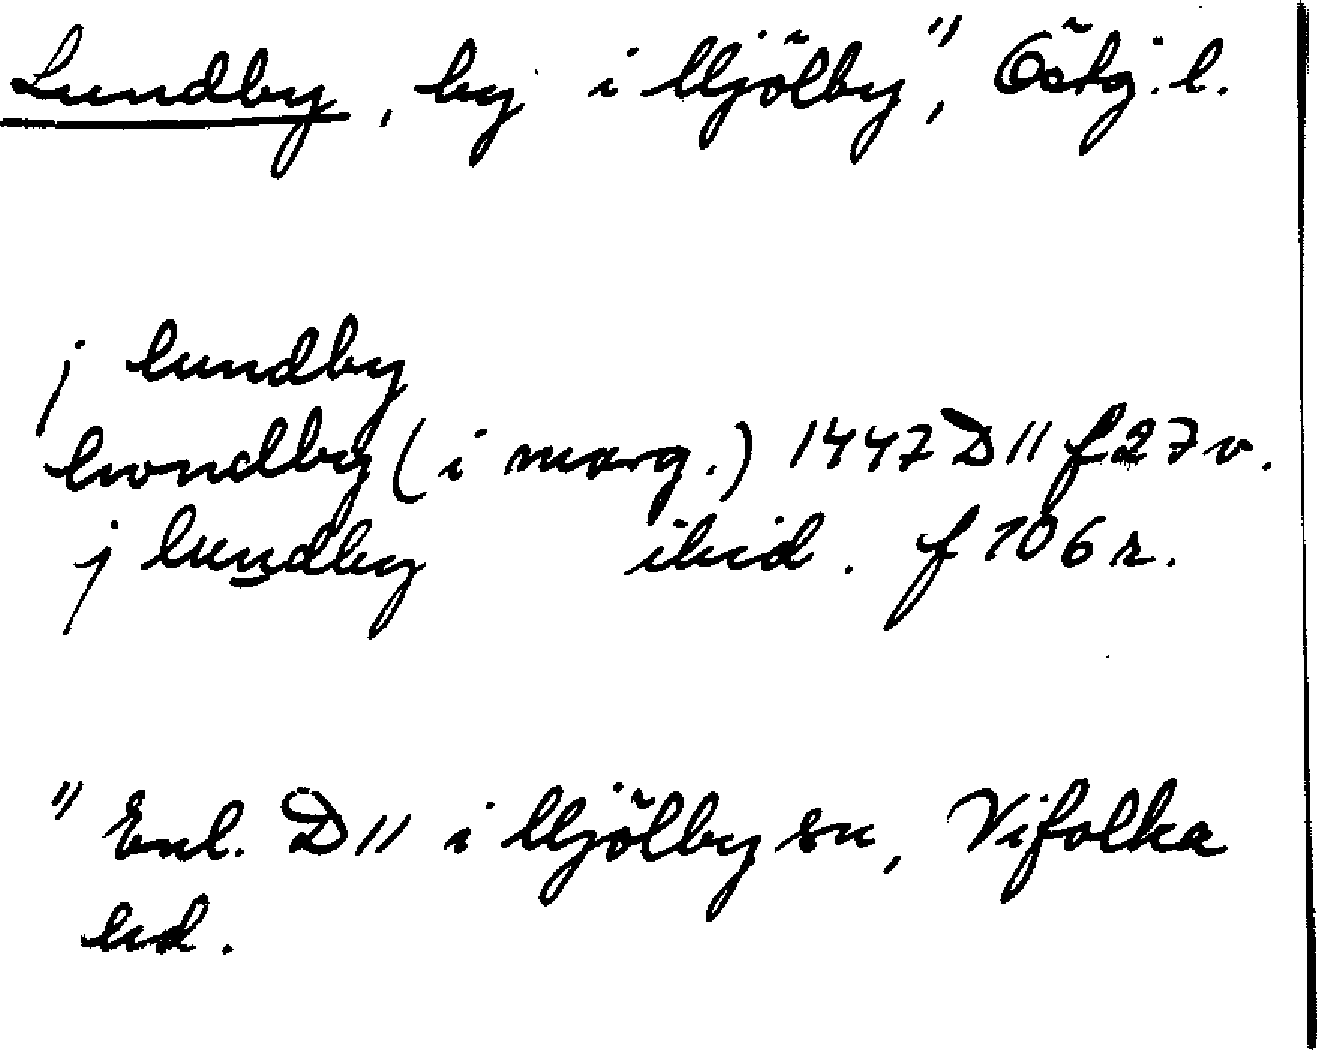 Lundby, by i Mjölby", Östg. l.
j lundby
lwndby (i marg.) 1447 D11 f 27 v.
j lundby ibid. f 106 r.
" Enl. D11 i Mjölby sn, Vifolka
hd.